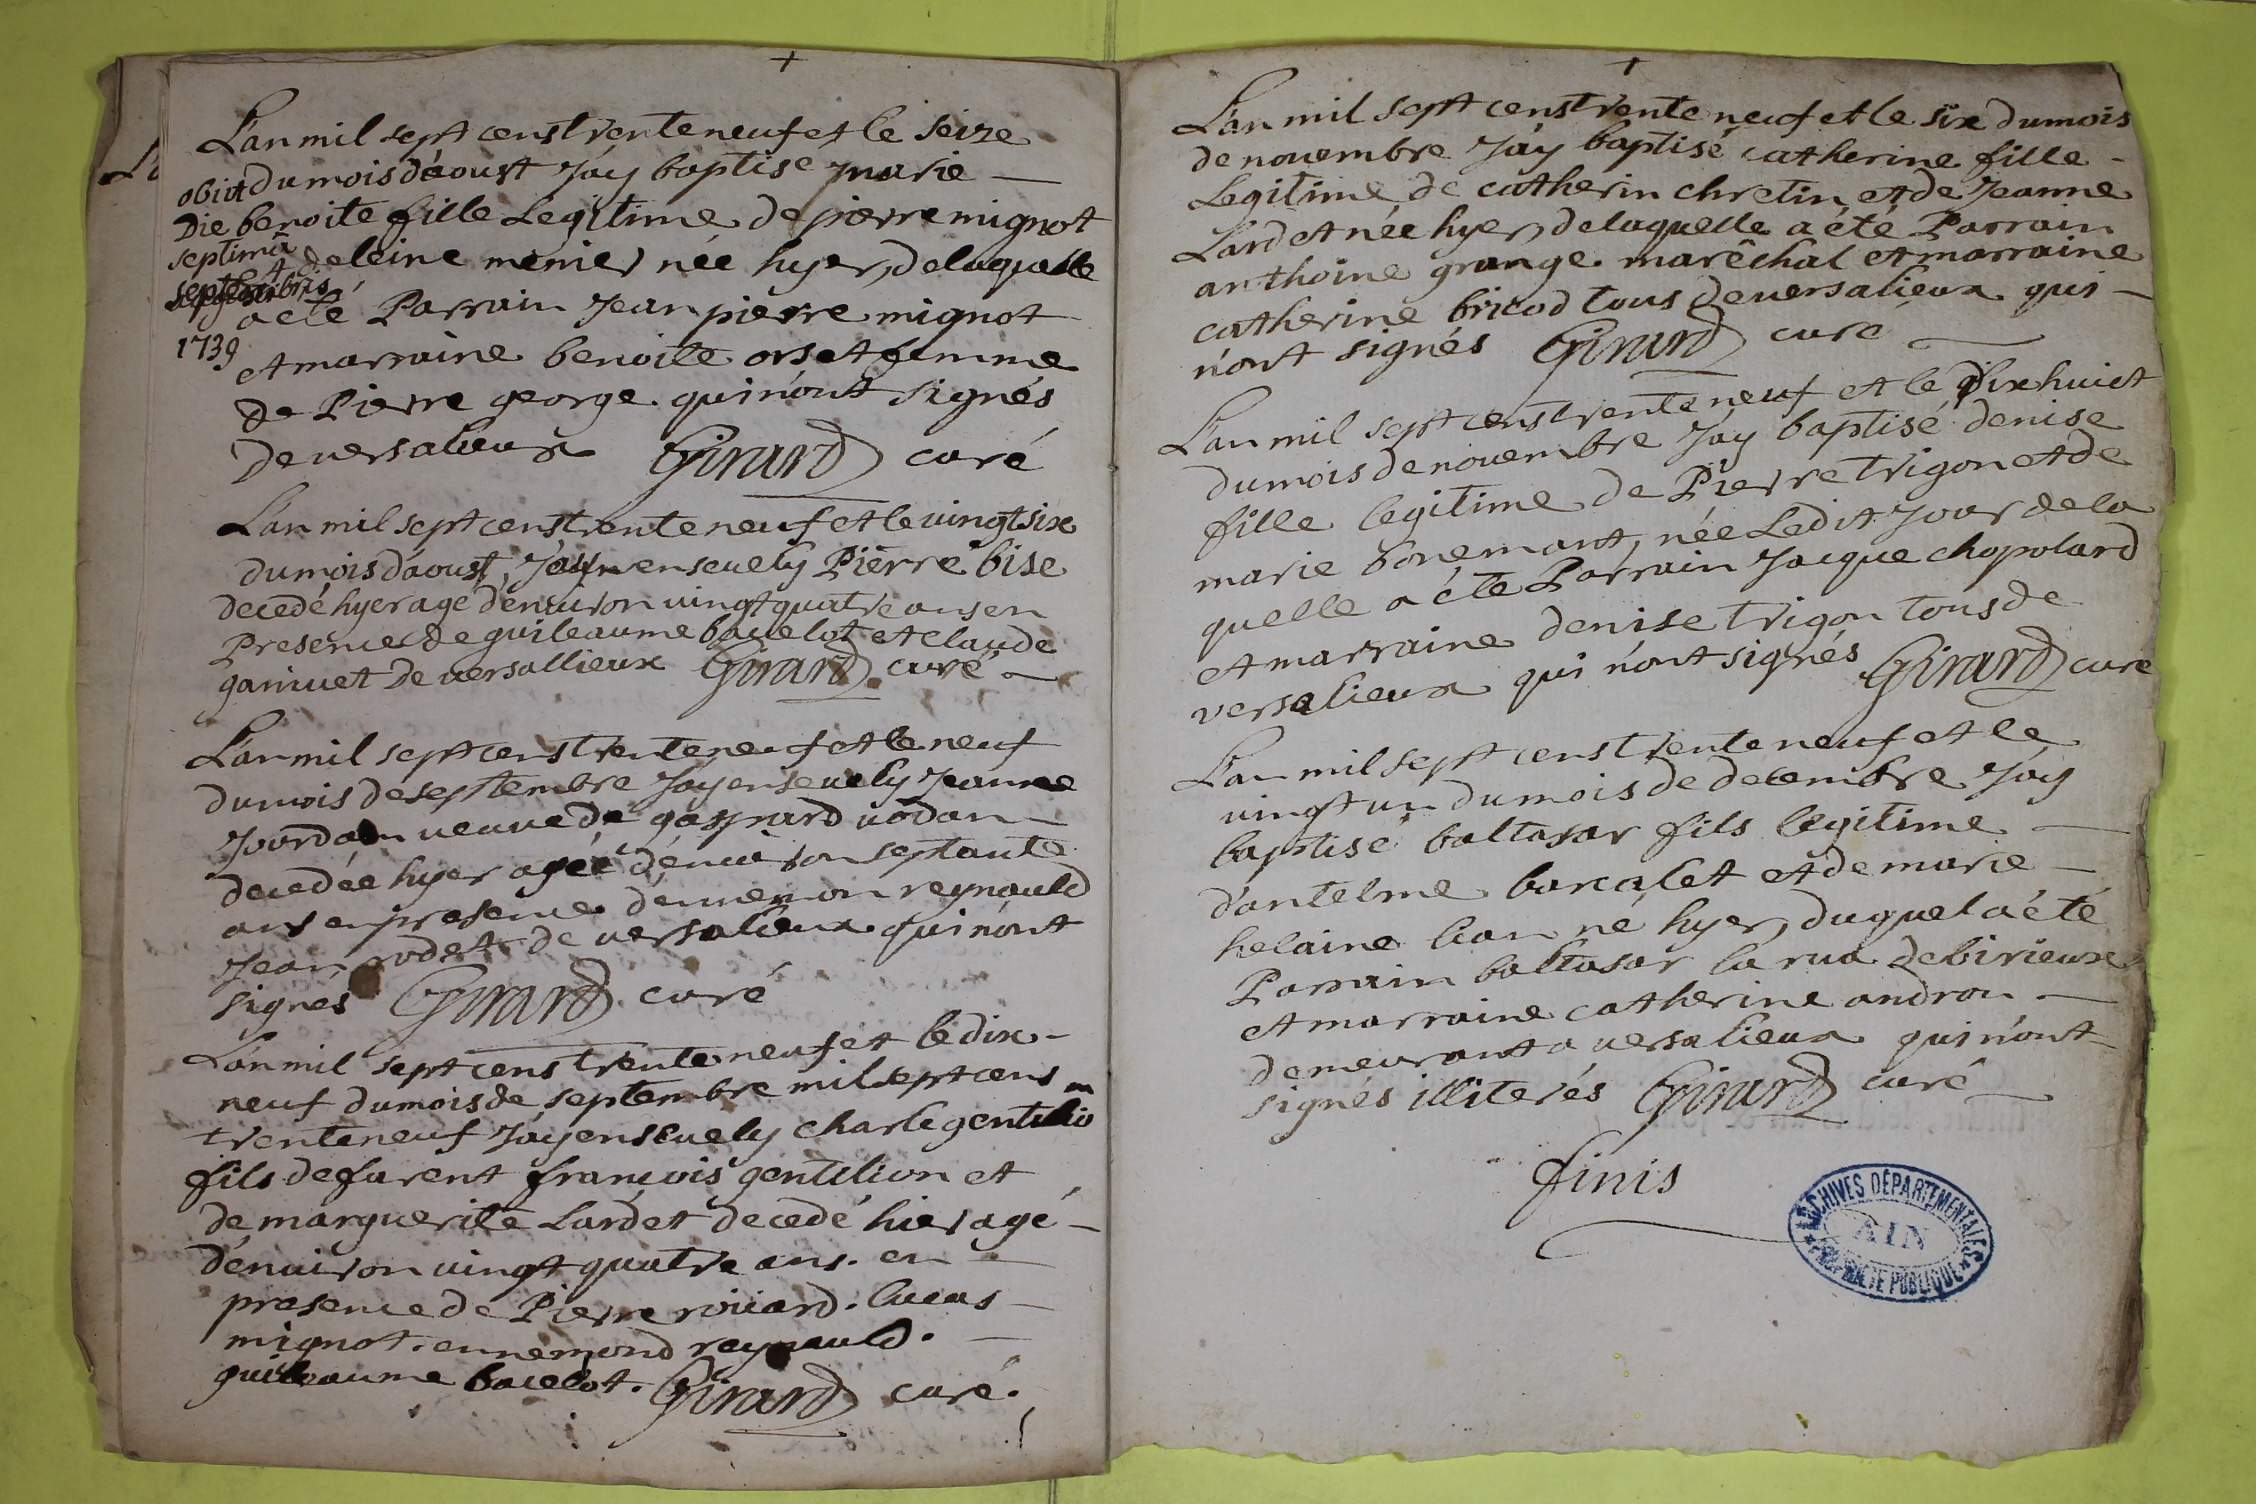 L'an mil sept cens trente neuf et le seize
du mois d'áoust J'áy baptisé marie
benoite fille Legitime de pierre mignot
et deleine menier née hyer, de laquelle
a été Parrain Jean pierre mignot
et marraine benoite orset femme
de Pierre george. qui n'ont signés
de versalieux Girard curé
obiit
Die
septima
septembris
1739
L'an mil sept cens trente neuf et le vingt six
du mois d'áoust, J'ay ensevely Pierre bise
decedé hyer agé d'environ vingt quatre ans en
Presence de guileaume bacelot et claude
ganivet de versallieux Girard curé
L'an mil sept cens trente neuf et le neuf
du mois de septembre J'ay ensevely Jeanne
Jourdan veuve de gaspard vodan
decedée hyer agée d'environ septante
ans en presence d'ennemon reynauld
Jean rodet de versalieux qui n'ont
signés Girard curé
L'an mil sept cens trente neuf et le dix
neuf du mois de septembre mil sept cens
trente neuf J'áy ensevely charle gentilio
fils de furent francois gentilion et
de marguerite Lardet decedé hier agé
d'environ vingt quatre ans. en
presence de Pierre rivard. lucas
mignot. ennemond reynauld.
guileaume bacelot. Girard curé.
L'an mil sept cens trente neuf et le six du mois
de novembre J'áy baptisé catherine fille
Legitime de catherin chretin et de Jeanne
Lardet née hyer, de laquelle a été Parrain
anthoine grange marêchal et marraine
catherine bricod tous de versalieux qui
n'ont signés Girard curé
L'an mil sept cens trente neuf et le dixhuict
du mois de novembre J'áy baptisé denise
fille legitime de Pierre trigon et de
marie bonemant, née Ledit Jour de la
quelle a été Parrain Jacque chapolard
et marraine denise trigon tous de
versalieux qui n'ont signés Girard curé
L'an mil sept cens trente neuf et le
vingt un du mois de decembre J'áy
baptisé baltasar fils legitime
d'antelme barcalet et de marie
helaine lian né hyer, duquel a été
Parrain baltasar la rua de birieux
et marraine catherine andron
demeurant a versalieux qui n'ont
signés illiterés Girard curé
finis
ARCHIVES DÉPARTEMENTALES
AIN
PROPRIÉTÉ PUBLIQUE